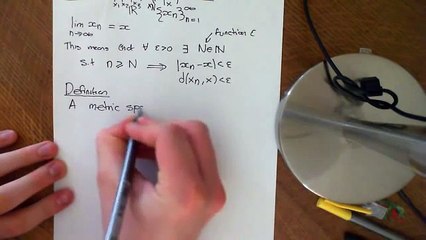 {xₙ}ₙ₌₁^∞
lim xₙ = x
n→∞
function ε
This means that ∀ ε>0 ∃ N∈ℕ
s.t n ≥ N ⟹ |xₙ-x|<ε
d(xₙ,x)<ε
Definition
A metric spa